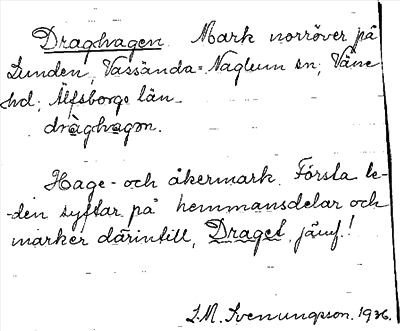 Draghagen. Mark norröver på
Lunden, Vassända-Naglum sn; Väne
hd; Älfsborgs län.
dràghagɷn.
Hage- och åkermark. Första le-
-den syftar på hemmansdelar och
marker därintill, Draget, jämf.!
L.M. Svenungsson. 1936.